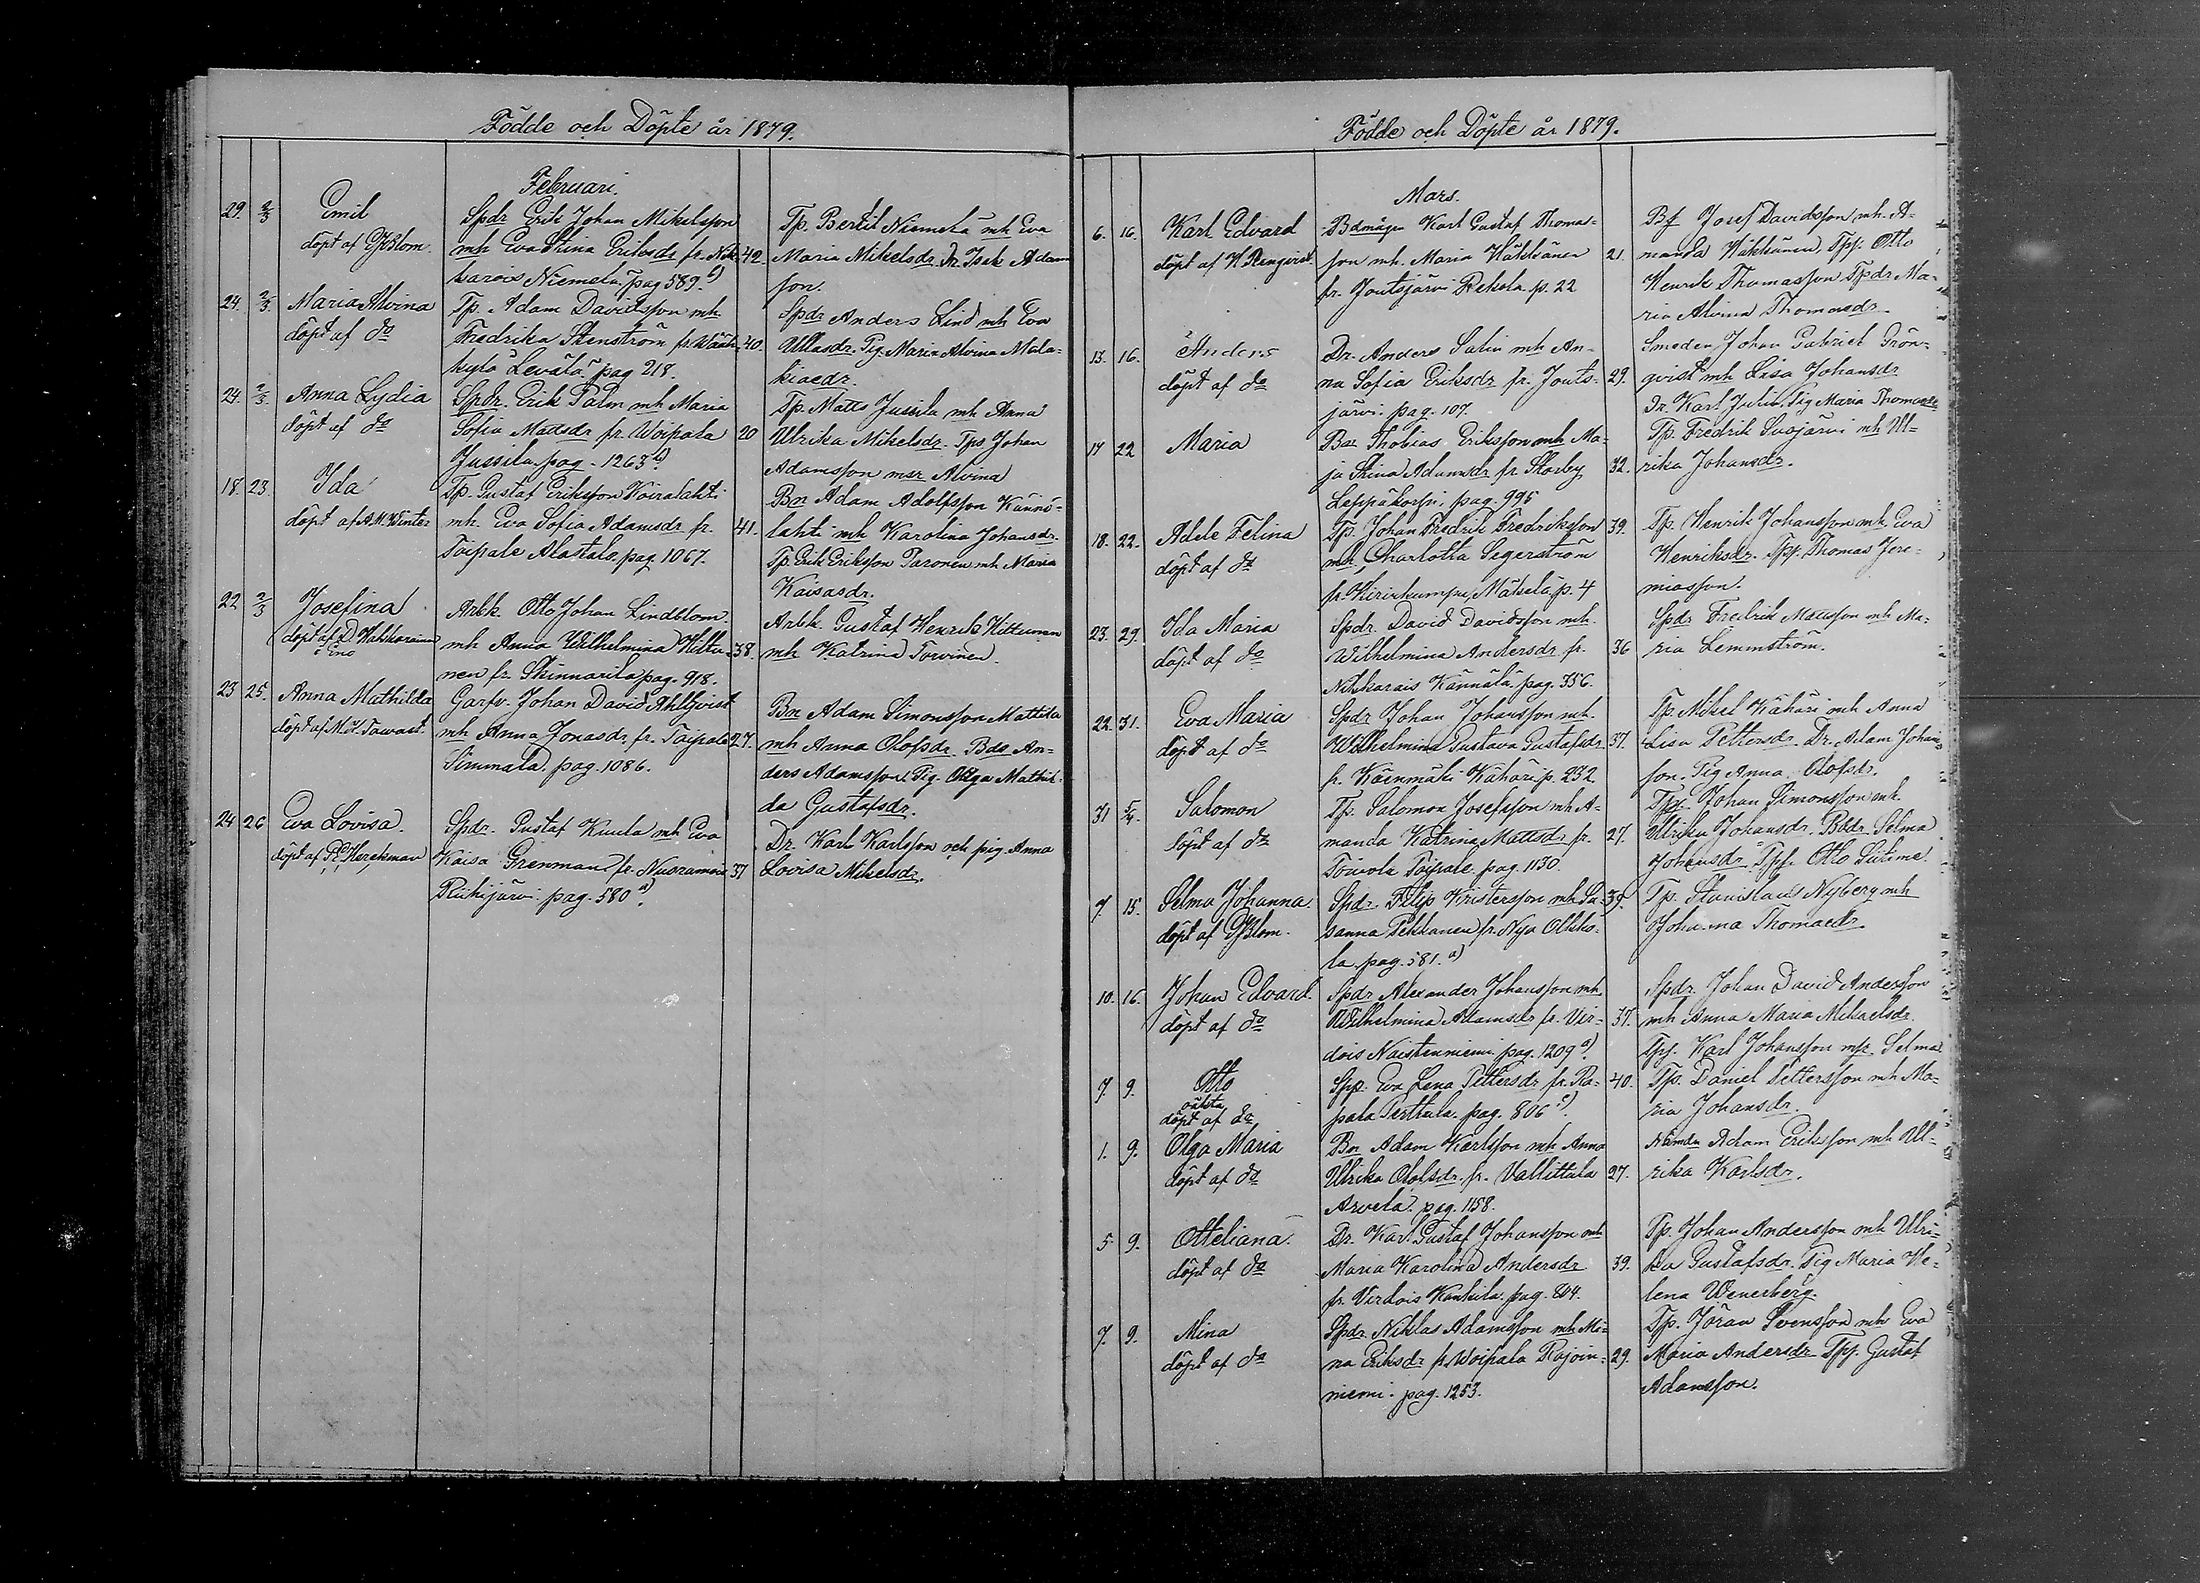 Födde och Döpte år 1879.
Februari.
29. 2/3 Emil Spdr Erik Johan Mikelsson Tp. Bertil Niemelä mh Eva
döpt af Blom. mh Eva Stina Eriksdr fr. 42. Maria Mikelsdr. Dr. Isak Adam
Niemelä pag 589. son.
24. 2/3. Maria Alvina Tp. Adam Davidsson mh Spdr Anders Lind mh Eva
döpt af do Fredrika Stenström fr. 40. Ullasdr. Pig. Maria Alvina Mala-
kylä Levälä. pag 218. kiaedr.
24. 2/3. Anna Lydia Spdr. Erik Palm mh Maria Tp. Matts Jussila mh Anna
döpt af do Sofia Mattsdr fr. Woipala 20 Ulrika Mikelsdr. Tps Johan
Jussila. pag. 1263 Adamsson msr Alvina
18. 23. Ida Tp. Gustaf Eriksson Koivalahti Bn Adam Adolfsson
döpt af A.W. Winter mh. Eva Sofia Adamsdr fr. 41. lahti mh Karolina Johansdr.
Toipale Alastalo. pag. 1067. Tp. Erik Eriksson Paronen mh Maria
Kaisasdr.
22 2/3 Josefina Arbk. Otto Johan Lindblom Arbk. Gustaf Henrik Kittunen
döpt af mh Anna Wilhelmina 38. mh Katrina Torvinen.
i Eno nen fr. Skinnarila pag. 918.
23 25. Anna Mathilda Garfv. Johan David Ahlqvist Bn Adam Simonsson Mattila
döpt af Tawast. mh Anna Jonasdr. fr. Toipale 27. mh Anna Olofsdr. Bds An-
Simmala. pag. 1086. ders Adamsson. Pig. Olga Mathil-
da Gustafsdr.
24 26 Eva Lovisa. Spdr. Gustaf Kuula mh Eva Dr. Karl Karlsson och pig. Anna
döpt af Herckman Kaisa Grenman fr. Nuoramois 37 Lovisa Mikelsdr.
Ruhijärvi pag. 580 a).
Födde och Döpte år 1879.
Mars.
6. 16. Karl Edvard Bdmågen Karl Gustaf Thomas- Bf Josef Davidsson mh. A-
döpt af H. Renqvist. son mh. Maria Häkkänen 21. manda Häkkänen, Tps. Otto
fr. Joutsjärvi Rekola p. 22 Henrik Thomasson Tpdr Ma-
ria Alvina Thomasdr.
13. 16. Anders Dr. Anders Salin mh An- Smeden Johan Gabriel Grön-
döpt af do na Sofia Eriksdr fr. Jouts- 29. qvist mh Lisa Johansdr
järvi. pag. 107. Dr. Karl Pig Maria Thomasdr
17 22 Maria Bn Thobias Eriksson mh Ma- Tp. Fredrik Suojärvi mh Ul-
ja Stina Adamsdr fr Storby 32. rika Johansdr.
Leppäkorpi. pag. 995
18. 22. Adele Felina Tp. Johan Fredrik Fredriksson 39. Tp. Henrik Johansson mh. Eva
döpt af do mh. Charlotta Segerström Henriksdr. Tps. Thomas Jere-
fr. Mäkelä p. 4 miasson.
23. 29. Ida Maria Spdr. David Davidsson mh. Spdr Fredrik Matsson mh Ma-
döpt af do Wilhelmina Andersdr fr. 36 ria Lemmström.
Nikkarais Kännälä. pag. 356.
22. 31. Eva Maria Spdr Johan Johansson mh. Tp. Mikel Kähäri mh Anna
döpt af do Wilhelmina Gustava Gustafsdr 37. Lisa Pettersdr. Dr. Adam Johans-
fr. Koinmäki Kähäri p. 232 son. Pig Anna Olofsdr.
31 5/4. Salomon Tp. Salomon Josefsson mh A- Tps. Johan Simonsson mh.
döpt af do manda Katrina Mattsdr fr. 27. Ulrika Johansdr. Bddr. Selma
Toivola Toipale. pag. 1130. Johansdr. Tps. Otto
7. 15. Selma Johanna. Spdr. Filip Kristersson mh Su- 39. Tp. Stanislaus Nyberg mh
döpt af Blom. sanna Pekkanen fr. Nya Olkko- Johanna Thomaedr.
la. pag. 581. a)
10. 16. Johan Edvard. Spdr. Alexander Johansson mh Spdr. Johan David Andersson
döpt af do Wilhelmina Adamsdr fr. Vir- 37. mh Anna Maria Mikaelsdr.
dois Naistenniemi pag. 1209 a). Tps. Karl Johansson msr. Selma
7. 9. Otto Spp. Eva Lena Pettersdr fr. Ra- 40. Tp. Daniel Pettersson mh Ma-
oäkta
döpt af do pala Perttula. pag. 806 c). ria Johansdr.
1. 9. Olga Maria Bn. Adam Karlsson mh Anna Nämdn Adam Eriksson mh Ul-
döpt af do Ulrika Olofsdr. fr. Vallittula 27. rika Karlsdr.
Arvela. pag. 1158.
5 9. Otteliana. Dr. Karl Gustaf Johansson mh Tp. Johan Andersson mh Ulri-
döpt af do Maria Karolina Andersdr 39. ka Gustafsdr. Pig Maria He-
fr. Virdois Kauhila. pag. 804. lena Wenerberg.
7. 9. Mina Spdr. Niklas Adamsson mh Mi- Tp. Jöran Svensson mh Eva
döpt af do na Eriksdr fr Woipala Rajoin- 29. Maria Andersdr Tps. Gustaf
niemi. pag. 1253. Adamsson.